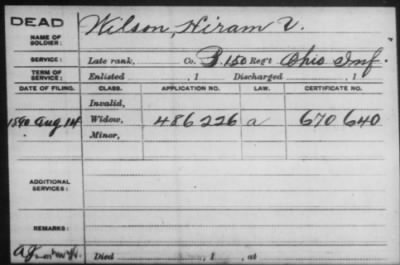 DEAD
Wilson, Hiram V.
NAME OF SOLDIER:
SERVICE: Late rank, Co. 150 Reg't Ohio Inf.
TERM OF SERVICE: Enlisted , 1 Discharged , 1
DATE OF FILING. CLASS. APPLICATION NO. LAW. CERTIFICATE NO.
Invalid,
1890 Aug 14 Widow, 486226 a 670640
Minor,
ADDITIONAL SERVICES:
REMARKS:
Died , 1 , at